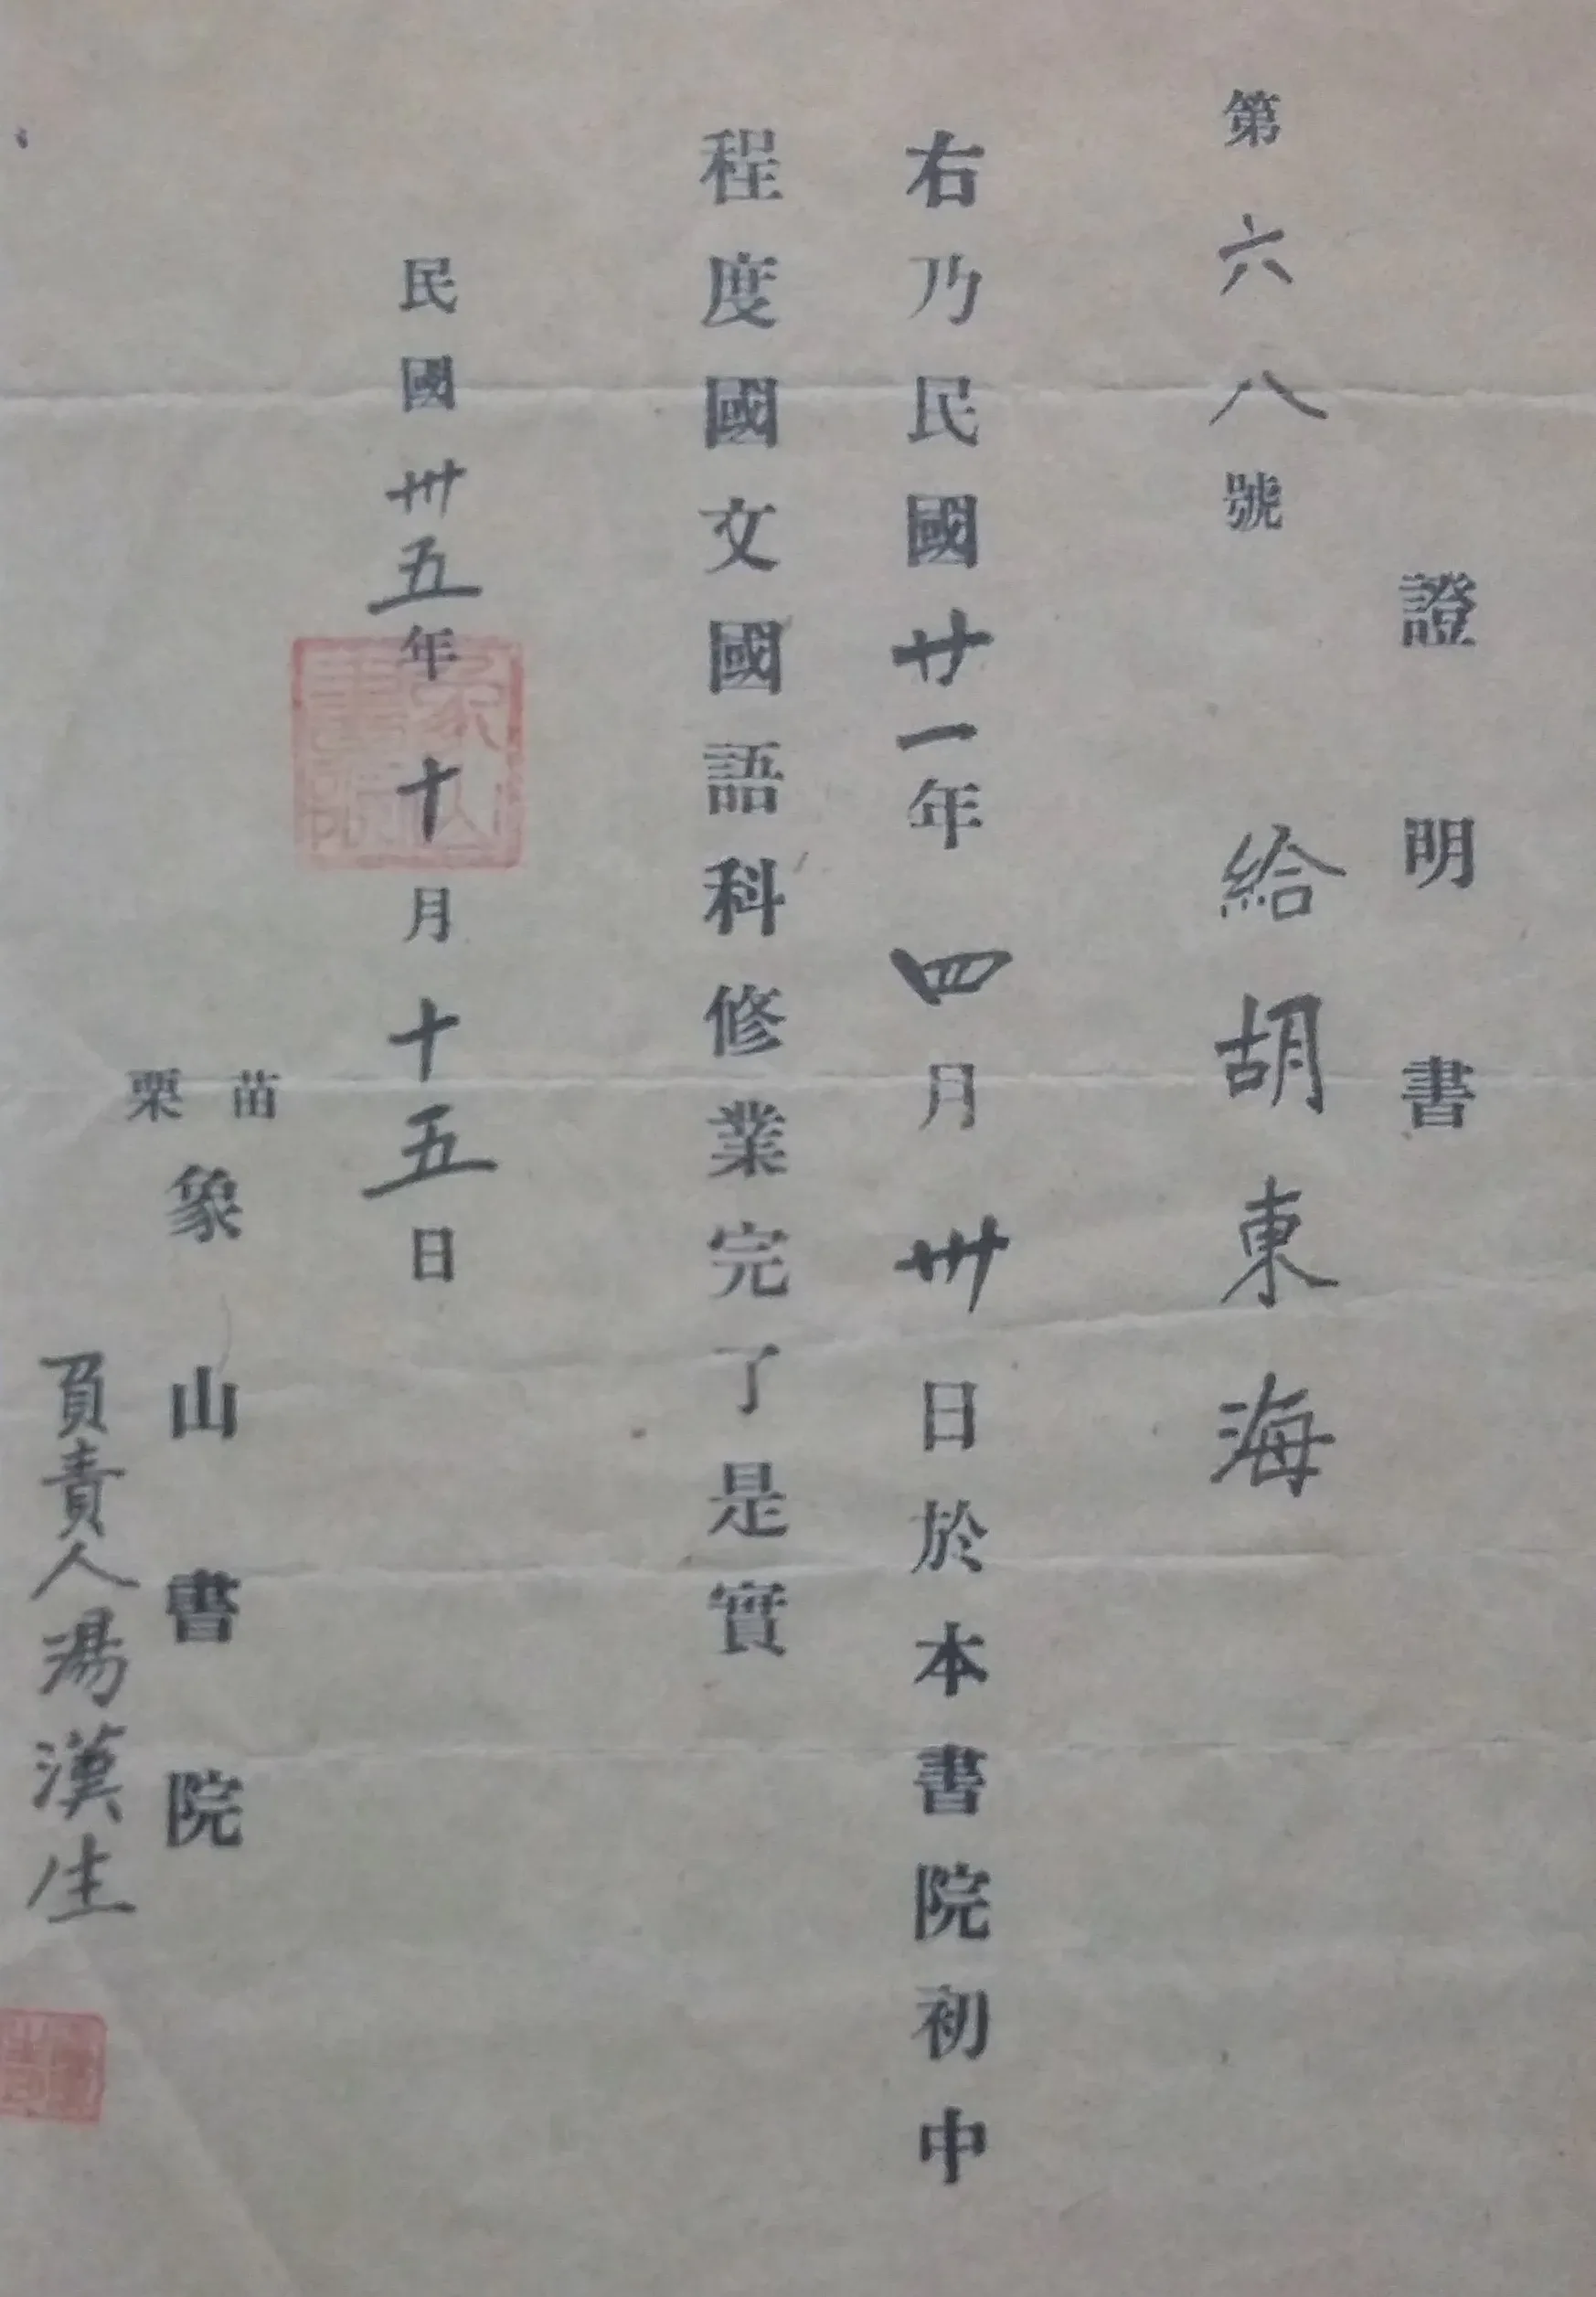 證明書
第六八號
給胡東海
右乃民國廿一年四月卅日於本書院初中
程度國文國語科修業完了是實
民國卅五年十月十五日
苗栗
象山書院
負責人湯漢生
象山書院